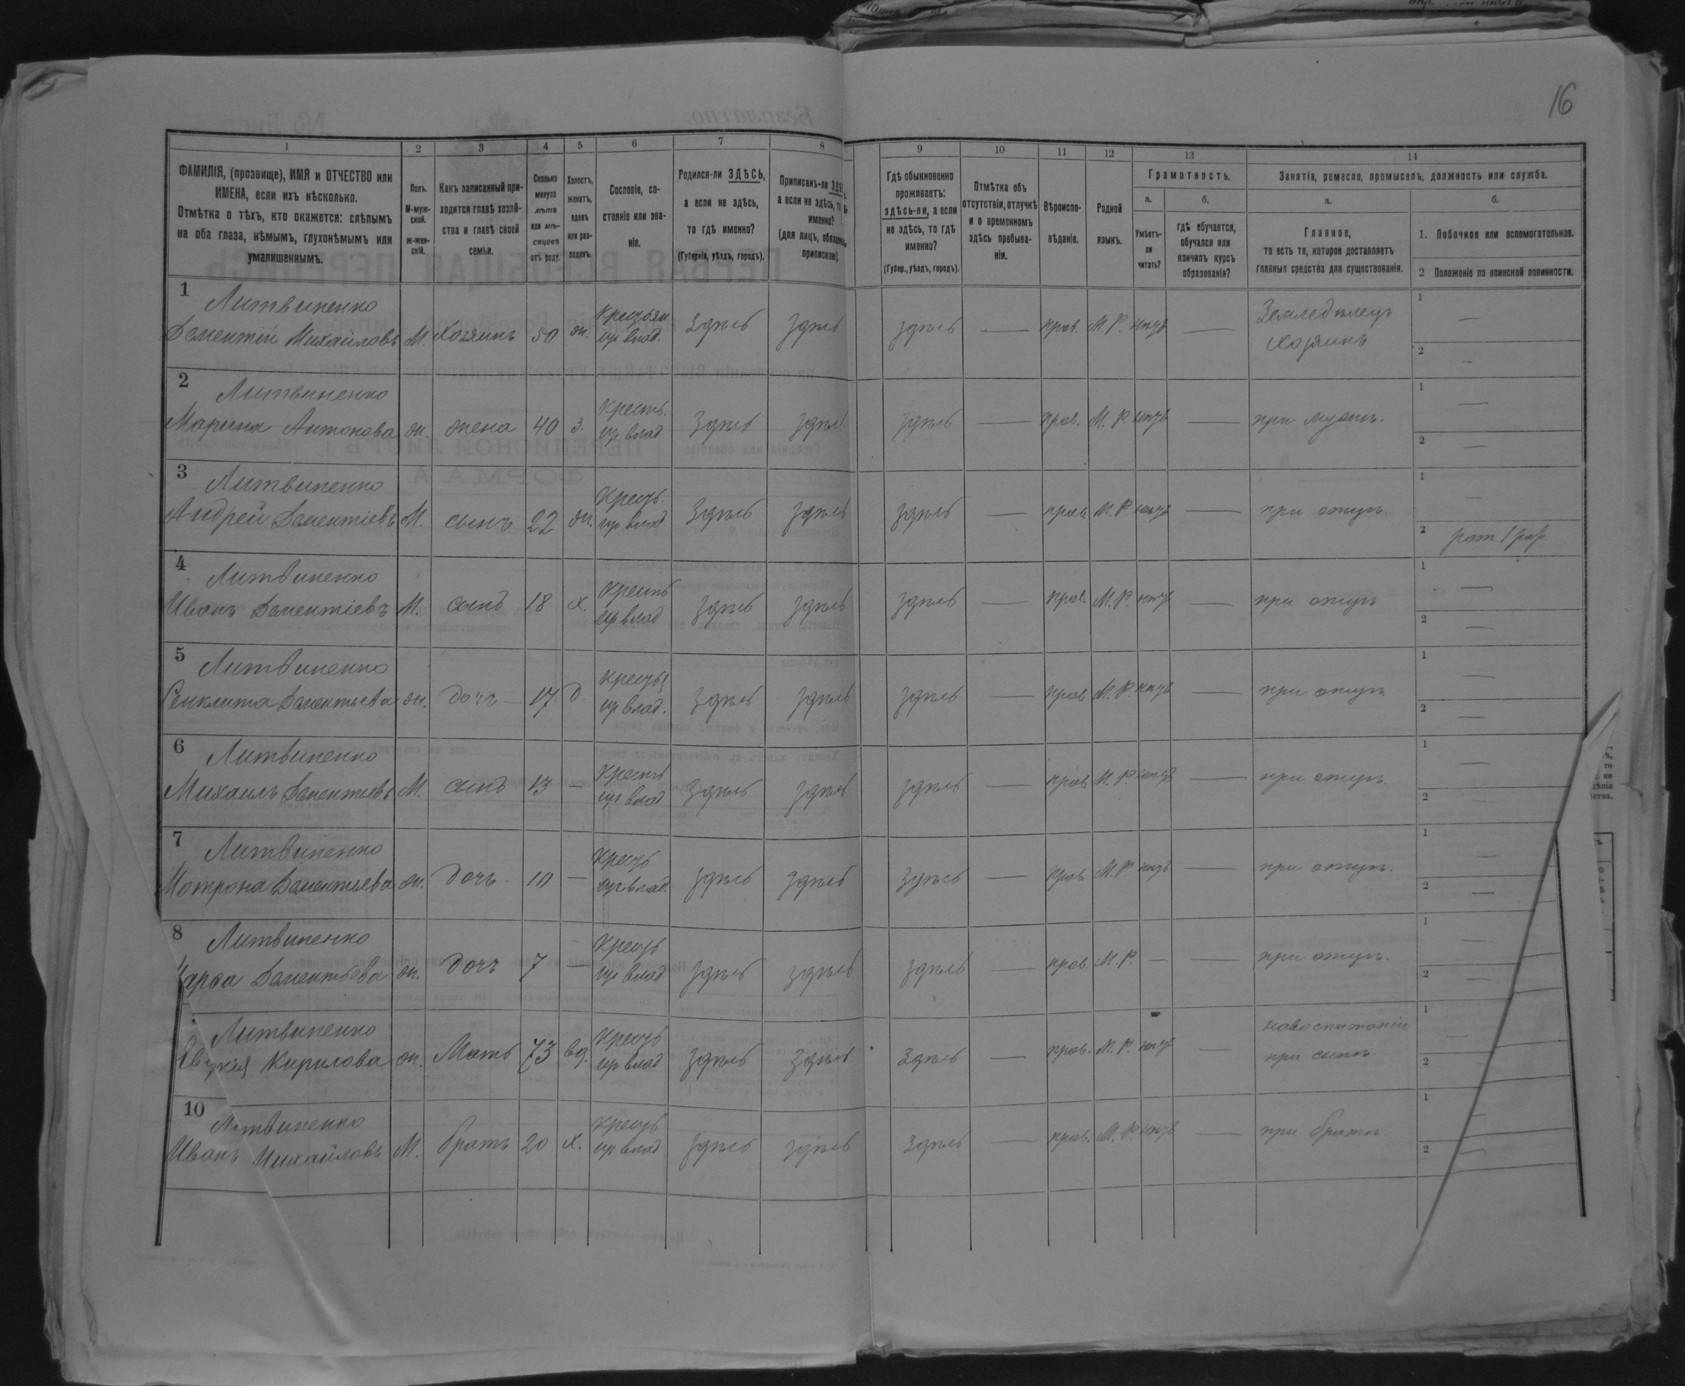 16
1 2 3 4 5 6 7 8 9 10 11 12 13 14
ФАМИЛІЯ, (прозвище), ИМЯ и ОТЧЕСТВО или
ИМЕНА, если ихъ нѣсколько.
Отмѣтка о тѣхъ, кто окажется: слѣпымъ
на оба глаза, нѣмымъ, глухонѣмымъ или
умалишеннымъ.
Полъ.
М-муж-
ской.
ж-жен-
скій.
Какъ записанный при-
ходится главѣ хозяй-
ства и главѣ своей
семьи.
Сколько
минуло
лѣтъ
или мѣ-
сяцевъ
отъ роду.
Холостъ,
женатъ,
вдовъ
или раз-
веденъ.
Сословіе, со-
стояніе или зва-
ніе.
Родился-ли ЗДѢСЬ,
а если не здѣсь,
то гдѣ именно?
(Губернія, уѣздъ, городъ).
Приписанъ-ли
а если не здѣсь,
именно?
(для лицъ,
Гдѣ обыкновенно
проживаетъ:
здѣсь-ли, а если
не здѣсь, то гдѣ
именно?
(Губер., уѣздъ, городъ).
Отмѣтка объ
отсутствіи, отлучкѣ
и о временномъ
здѣсь пребыва-
ніи.
Вѣроиспо-
вѣданіе.
Родной
языкъ.
Грамотность.
а.
Умѣетъ-
ли
читать?
б.
гдѣ обучается,
обучался или
кончилъ курсъ
образованія?
Занятія, ремесло, промыселъ, должность или служба.
а.
Главное,
то есть то, которое доставляетъ
главныя средства для существованія.
б.
1. Побочное или вспомогательное.
2 Положеніе по воинской повинности.
1 Литвиненко
Дементій Михайловъ М. Хозяинъ 50 ж. здѣсь здѣсь здѣсь — прав. М. Р. нѣтъ — Земледѣлецъ
Хозяинъ
1 —
2 —
2 Литвиненко
Марина Антонова ж. жена 40 з. Кресть. здѣсь здѣсь здѣсь — прав. М. Р. нѣтъ — при мужѣ.
1 —
2 —
3 Литвиненко
Андрей Дементіевъ М. сынъ 22 ж. здѣсь здѣсь здѣсь — прав М. Р. нѣтъ при отцѣ.
1 —
2
4 Литвиненко
Иванъ Дементіевъ М. сынъ 18 х. здѣсь здѣсь здѣсь — прав. М. Р. нѣтъ — при отцѣ
1 —
2 —
5 Литвиненко
Дементьева ж. дочь 17 д. здѣсь здѣсь здѣсь — прав М. Р. нѣтъ — при отцѣ
1 —
2 —
6 Литвиненко
Михаилъ Дементіевъ М. сынъ 13 — здѣсь здѣсь здѣсь — прав. М. Р. нѣтъ — при отцѣ.
1 —
2 —
7 Литвиненко
Мотрона Дементьева ж. дочь 10 — здѣсь здѣсь здѣсь — прав М. Р. нѣтъ — при отцѣ.
1 —
2 —
8 Литвиненко
Дементьева ж. дочь 7 — здѣсь здѣсь здѣсь — прав. М. Р. — — при отцѣ.
1 —
2 —
Литвиненко
Кирилова ж. Мать 73 вд. здѣсь здѣсь здѣсь — прав. М. Р. нѣтъ —
при сынѣ
1 —
2
10 Литвиненко
Иванъ Михайловъ М. братъ 20 х. здѣсь здѣсь здѣсь — прав. М. Р. нѣтъ — при братѣ
1 —
2 —